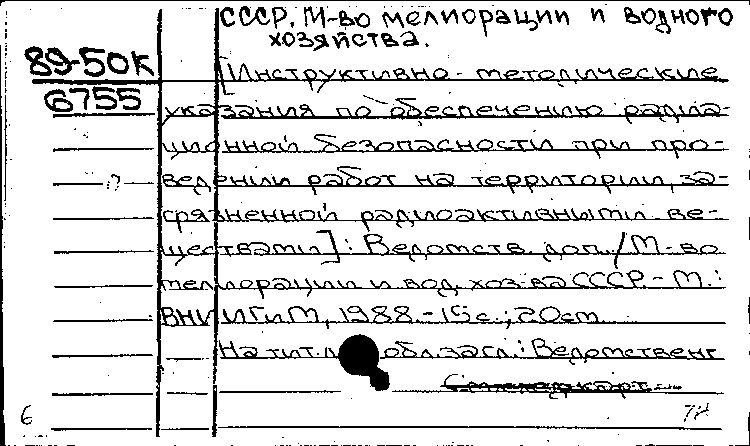 СССР. М-во мелиорации и водного
хозяйства.
89-50К
6755
[Инструктивно-методические
указания по обеспечению радиа-
ционной безопасности при про-
ведении работ на территории, за-
грязненной радиоактивными ве-
ществами]: Ведомств. доп. / М-во
мелиорации и вод. хоз-ва СССР. - М.:
ВНИИГиМ, 1988. - 15 с.; 20 см
На тит. л. обл. загл.: Ведомственн
6